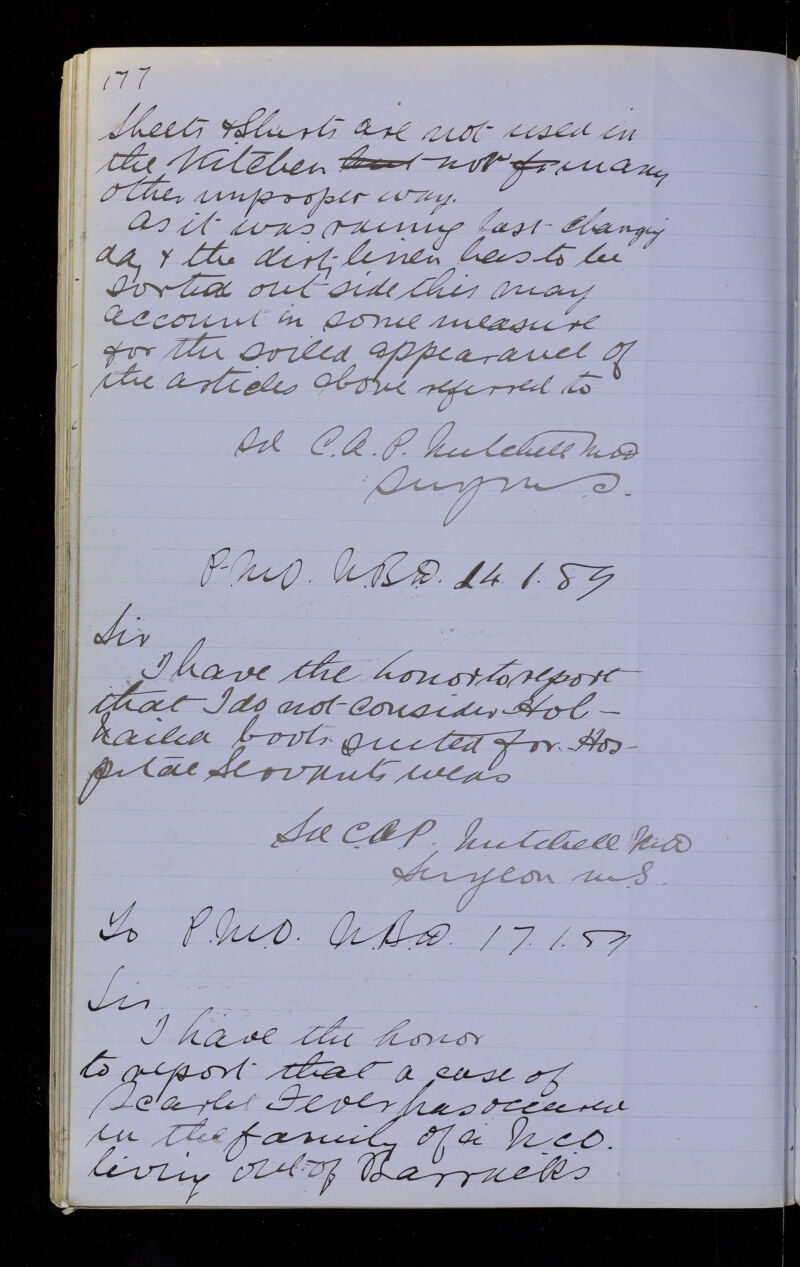 177
Sheets & Shirts are not used in
the Kitchen but nor in many
other unproper way.
As it was raining last changing
day & the dirty linen has to be
sorted out side this may
account in some measure
for the soiled appearance of
the articles above referred to
Sd C.A.P. Mitchell MD
Surgn M.S.
P.M.O. N.B.D. 14.1.89
Sir
I have the honor to report
that I do not consider Hob-
nailed boots suited for Hos-
pital Servants wear
Sd C.A.P. Mitchell MD
Surgeon M.S.
To P.M.O. N.B.D. 17.1.89
Sir
I have the honor
to report that a case of
Scarlet Fever has occurred
in the family of a N.C.O.
living out of Barracks